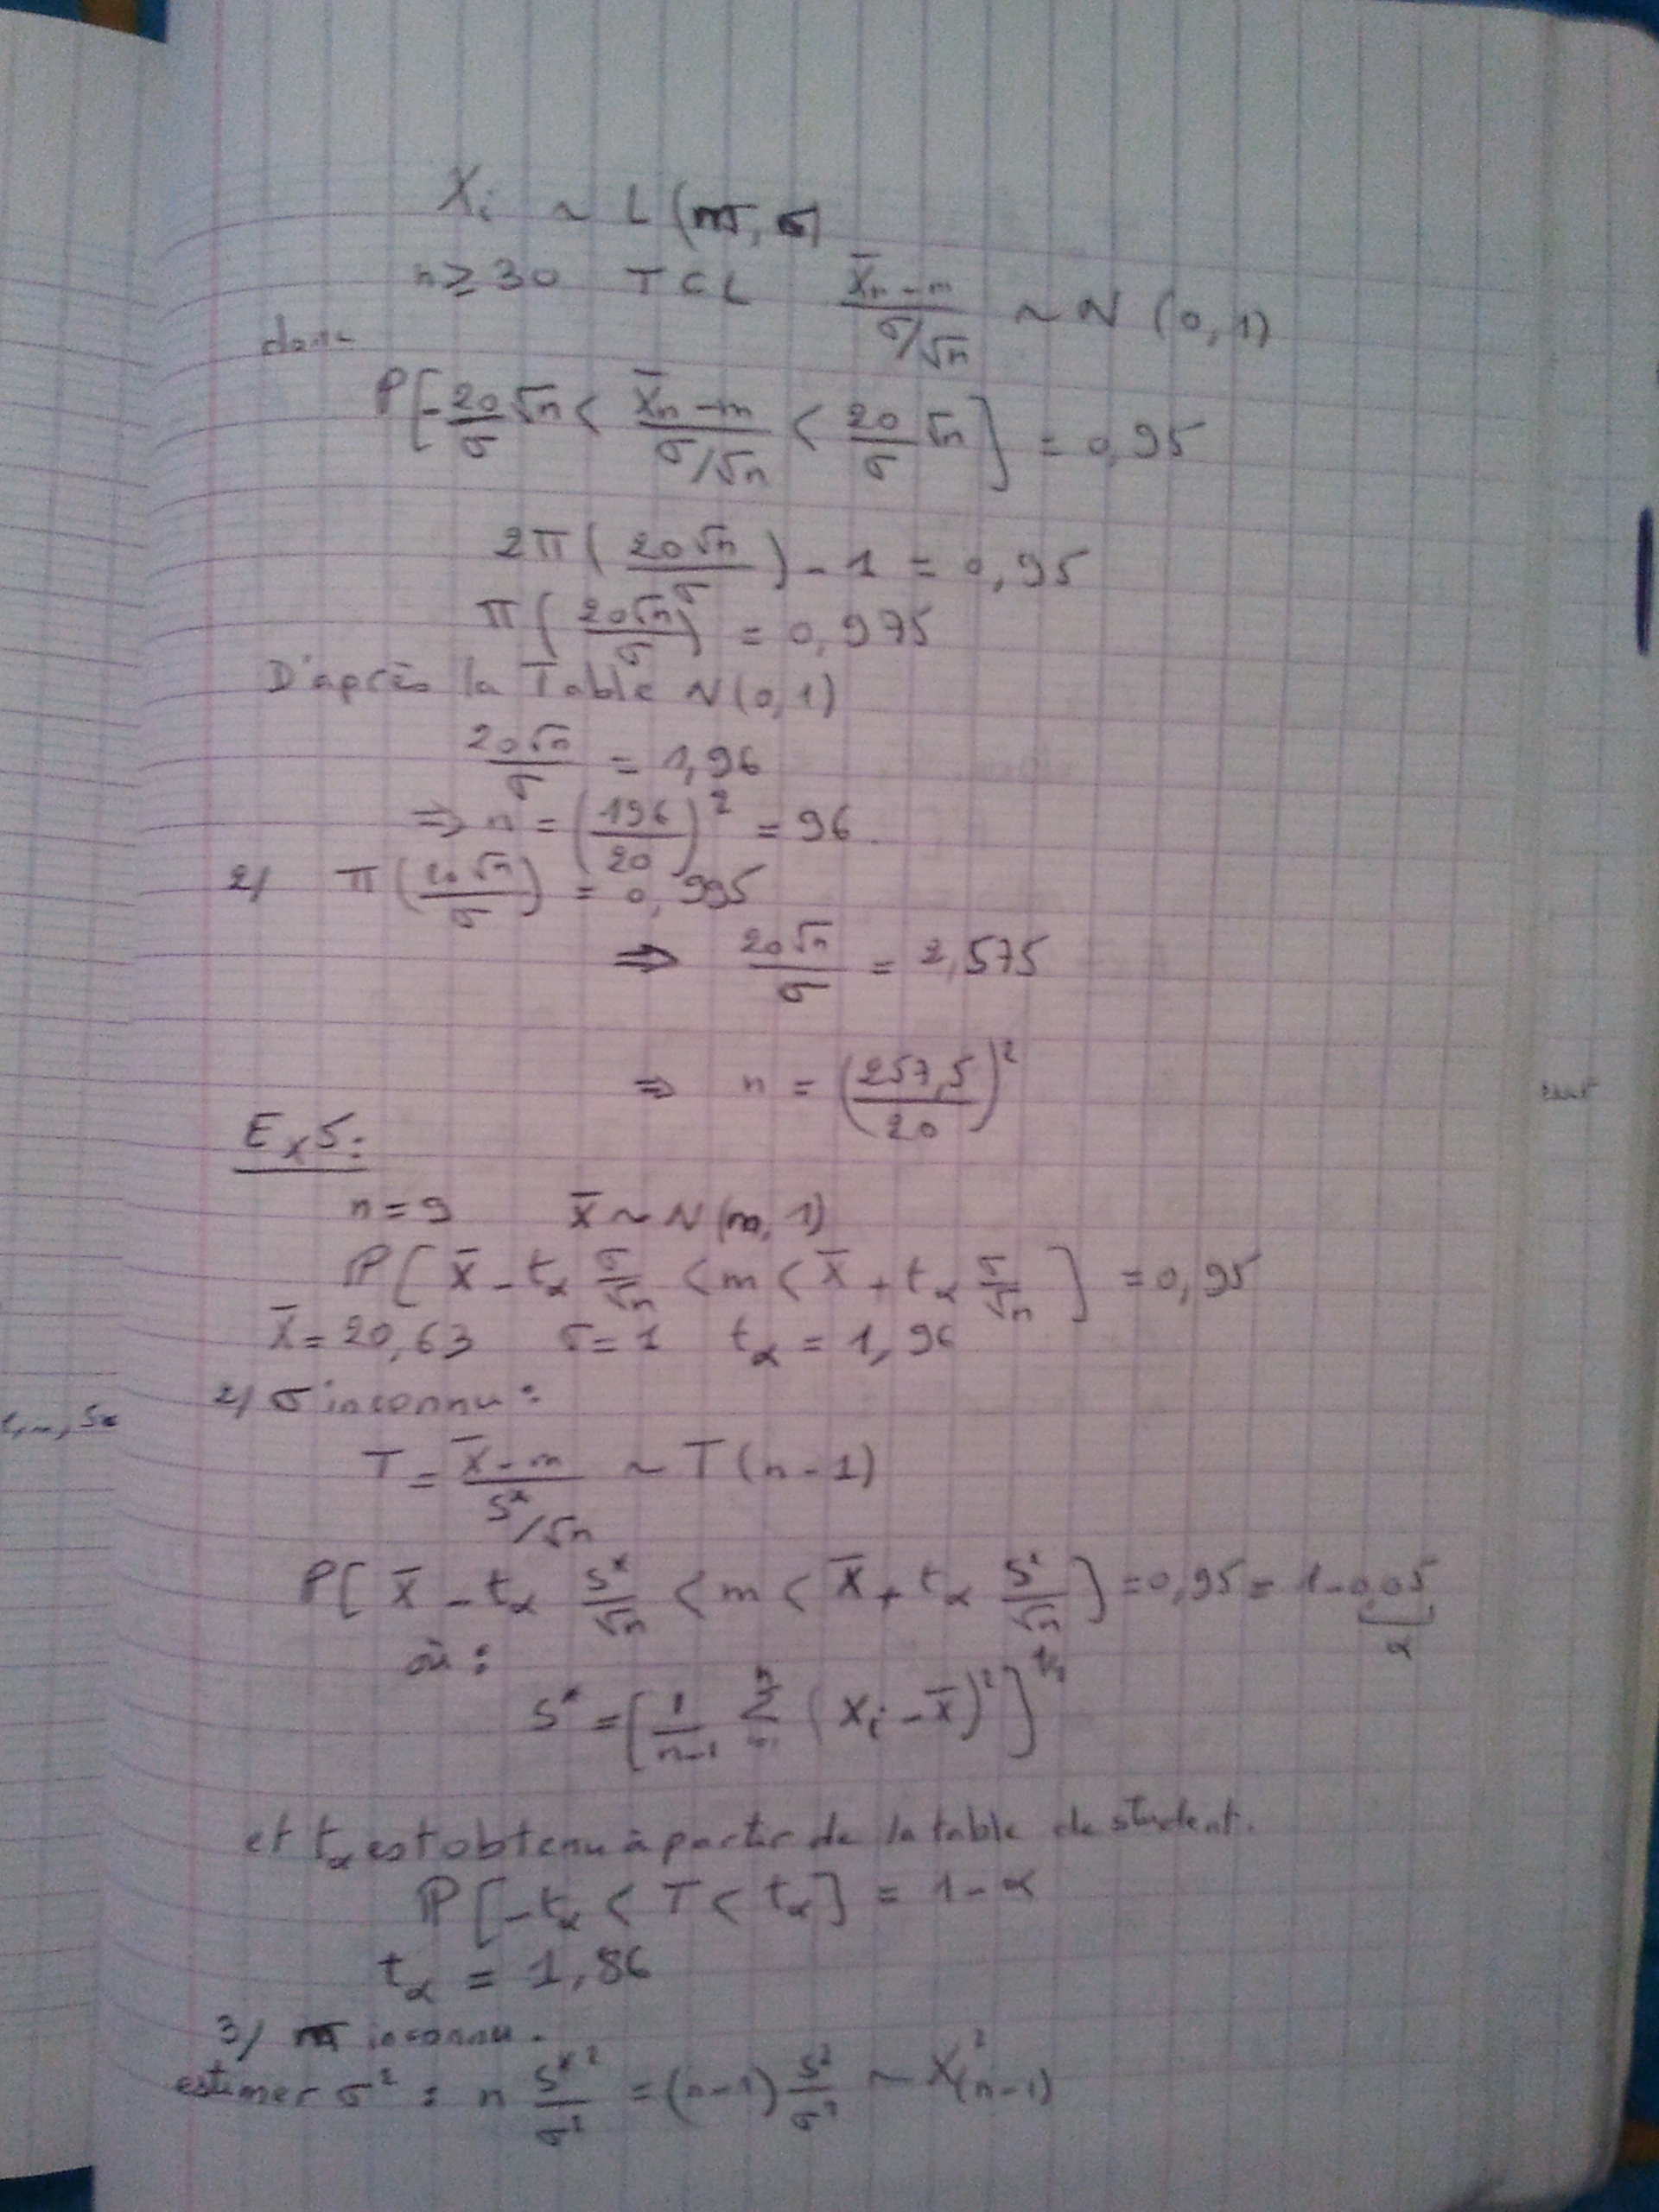 Xᵢ ~ L(m, σ)
n ≥ 30 TCL (X̄ₙ - m)/(σ/√n) ~ N(0, 1)
donc
P[-20/σ √n < (X̄ₙ - m)/(σ/√n) < 20/σ √n] = 0,95
2π(20√n/σ) - 1 = 0,95
π(20√n/σ) = 0,975
D'après la Table N(0, 1)
20√n/σ = 1,96
⇒ n = (196/20)² = 96
2/ π(20√n/σ) = 0,995
⇒ 20√n/σ = 2,575
⇒ n = (257,5/20)²
Ex 5:
n = 9 X̄ ~ N(m, 1)
P[X̄ - tα σ/√n < m < X̄ + tα σ/√n] = 0,95
X̄ = 20,63 σ = 1 tα = 1,96
2/ σ inconnu:
T = (X̄ - m)/(S*/√n) ~ T(n-1)
P[X̄ - tα S*/√n < m < X̄ + tα S*/√n] = 0,95 = 1 - 0,05
α
où :
S* = [1/(n-1) Σ (Xᵢ - X̄)²]^½
et tα est obtenu à partir de la table de student.
P[-tα < T < tα] = 1 - α
tα = 1,86
3/ m inconnu.
estimer σ² : n S*²/σ² = (n-1) S²/σ² ~ X²(n-1)